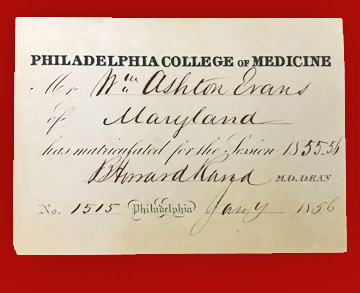 PHILADELPHIA COLLEGE OF MEDICINE
Mr Wm Ashton Evans
of Maryland
has matriculated for the Session 1855-56
B Howard Rand M.D. DEAN
No. 1515 Philadelphia Jany 1856